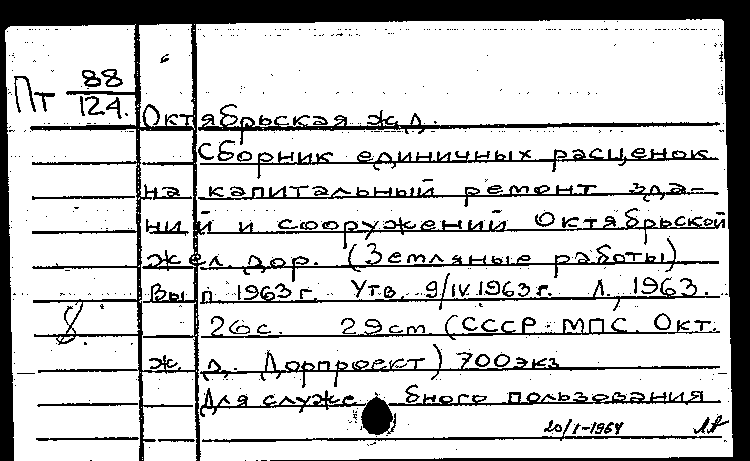 Пт 88/124.
Октябрьская ж.д.
Сборник единичных расценок
на капитальный ремонт зда-
ний и сооружений Октябрьской
жел. дор. (Земляные работы)
Вып 1963г. Утв. 9/IV.1963г. Л, 1963.
8.
26с. 29см (СССР. МПС. Окт.
ж. д. Дорпроект) 700экз
Для служебного пользования
20/I-1964